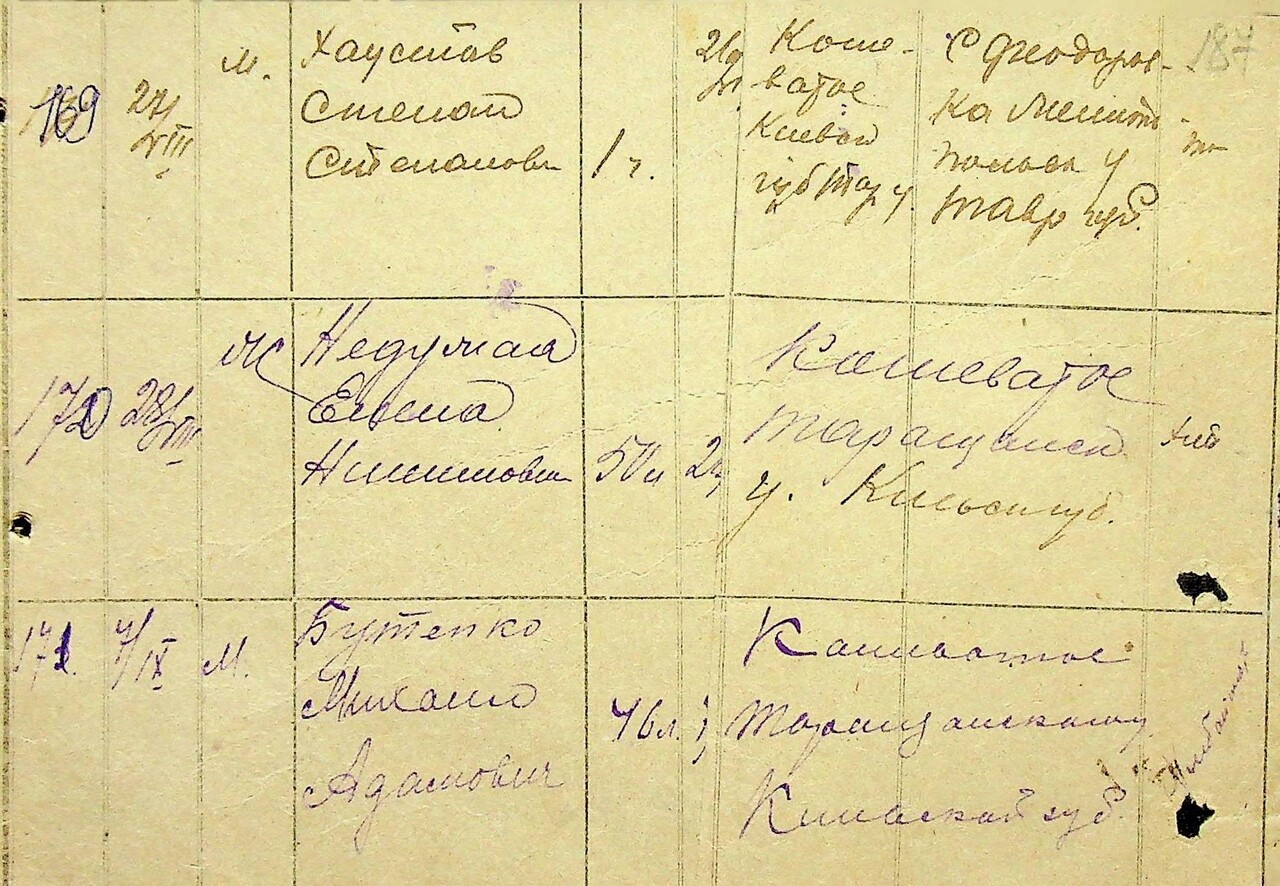 187
169 27/VIII м. Хаустов
Степан
Степанови
1 г.
Коше-
ватое
Киевск
губ Тар у.
С Феодоров-
ка Мелито-
польск у
Тавр губ.
170 28/VIII ж Недумая
Елена
50 л
Кошеватое
Таращанск
у. Киевск губ.
171. 7/IX м. Бутенко
Михаил
Адамович
46 л.
Кашеватое
Таращанском у
Киевской губ.